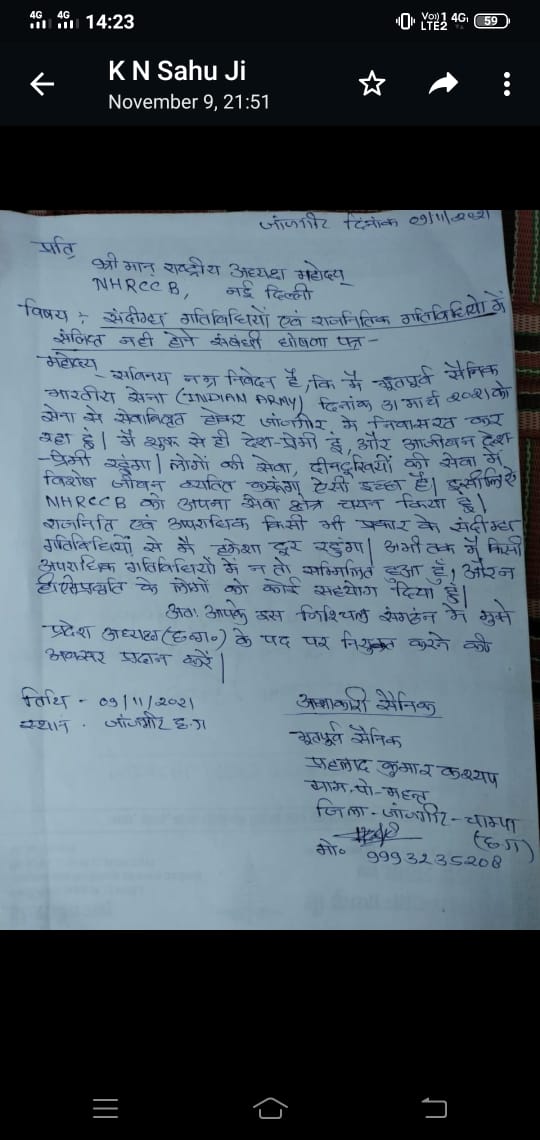 4G 4G 14:23 Vo))1 4G LTE2 59
K N Sahu Ji
November 9, 21:51
जांजगीर दिनांक 09/11/2021
प्रति,
श्री मान् राष्ट्रीय अध्यक्ष महोदय
NHRCCB, नई दिल्ली
विषय : संदीग्ध गतिविधियों एवं राजनितिक गतिविधियो में
संलिप्त नही होने संबंधी घोषणा पत्र -
महोदय,
सविनय नम्र निवेदन है, कि मैं भूतपूर्व सैनिक
भारतीय सेना (INDIAN ARMY) दिनांक 31 मार्च 2021 को
सेना से सेवानिवृत होकर जांजगीर में निवासरत कर
रहा हूं। मैं शुरू से ही देश-प्रेमी हूं, और आजीवन देश
-प्रेमी रहूंगा। लोगों की सेवा, दीनदुखियों की सेवा में
विशेष जीवन व्यतित करूंगा ऐसी इच्छा है। इसीलिऐ
NHRCCB को अपना सेवा क्षेत्र चयन किया हूं।
राजनिति एवं अपराधिक किसी भी प्रकार के संदीग्ध
गतिविधियों से मै हमेशा दूर रहूंगा। अभी तक मैं किसी
अपराधिक गतिविधियों में न तो सम्मिलित हुआ हूँ, और न
ही प्रवृति के लोगों को कोई सहयोग दिया हूं।
अतः आपके इस संगठन में मुझे
प्रदेश अध्यक्ष (छ०ग०) के पद पर नियुक्त करने की
अवसर प्रदान करें।
तिथि - 09/11/2021
स्थान - जांजगीर छ.ग
सैनिक
भूतपूर्व सैनिक
प्रहलाद कुमार कश्यप
ग्राम. पो - महन्त
जिला - जांजगीर - चाम्पा
(छ.ग)
मो० 9993235208